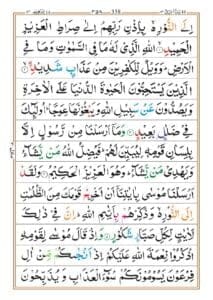 اِلَى النُّوْرِ ۙ۬ بِاِذْنِ رَبِّهِمْ اِلٰى صِرَاطِ الْعَزِيْزِ
الْحَمِيْدِ ۙ اللّٰهِ الَّذِيْ لَهٗ مَا فِي السَّمٰوٰتِ وَمَا فِي
الْاَرْضِ ؕ وَوَيْلٌ لِّلْكٰفِرِيْنَ مِنْ عَذَابٍ شَدِيْدِ ۙ
الَّذِيْنَ يَسْتَحِبُّوْنَ الْحَيٰوةَ الدُّنْيَا عَلَى الْاٰخِرَةِ
وَيَصُدُّوْنَ عَنْ سَبِيْلِ اللّٰهِ وَيَبْغُوْنَهَا عِوَجًا ؕ اُولٰٓئِكَ
فِيْ ضَلٰلٍ ۢ بَعِيْدٍ وَمَاۤ اَرْسَلْنَا مِنْ رَّسُوْلٍ اِلَّا
بِلِسَانِ قَوْمِهٖ لِيُبَيِّنَ لَهُمْ ؕ فَيُضِلُّ اللّٰهُ مَنْ يَّشَآءُ
وَيَهْدِيْ مَنْ يَّشَآءُ ؕ وَهُوَ الْعَزِيْزُ الْحَكِيْمُ وَلَقَدْ
اَرْسَلْنَا مُوْسٰى بِاٰيٰتِنَاۤ اَنْ اَخْرِجْ قَوْمَكَ مِنَ الظُّلُمٰتِ
اِلَى النُّوْرِ ۙ۬ وَذَكِّرْهُمْ بِاَيّٰىمِ اللّٰهِ ؕ اِنَّ فِيْ ذٰلِكَ
لَاٰيٰتٍ لِّكُلِّ صَبَّارٍ شَكُوْرٍ وَاِذْ قَالَ مُوْسٰى لِقَوْمِهِ
اذْكُرُوْا نِعْمَةَ اللّٰهِ عَلَيْكُمْ اِذْ اَنْجٰىكُمْ مِّنْ اٰلِ
فِرْعَوْنَ يَسُوْمُوْنَكُمْ سُوْٓءَ الْعَذَابِ وَيُذَبِّحُوْنَ